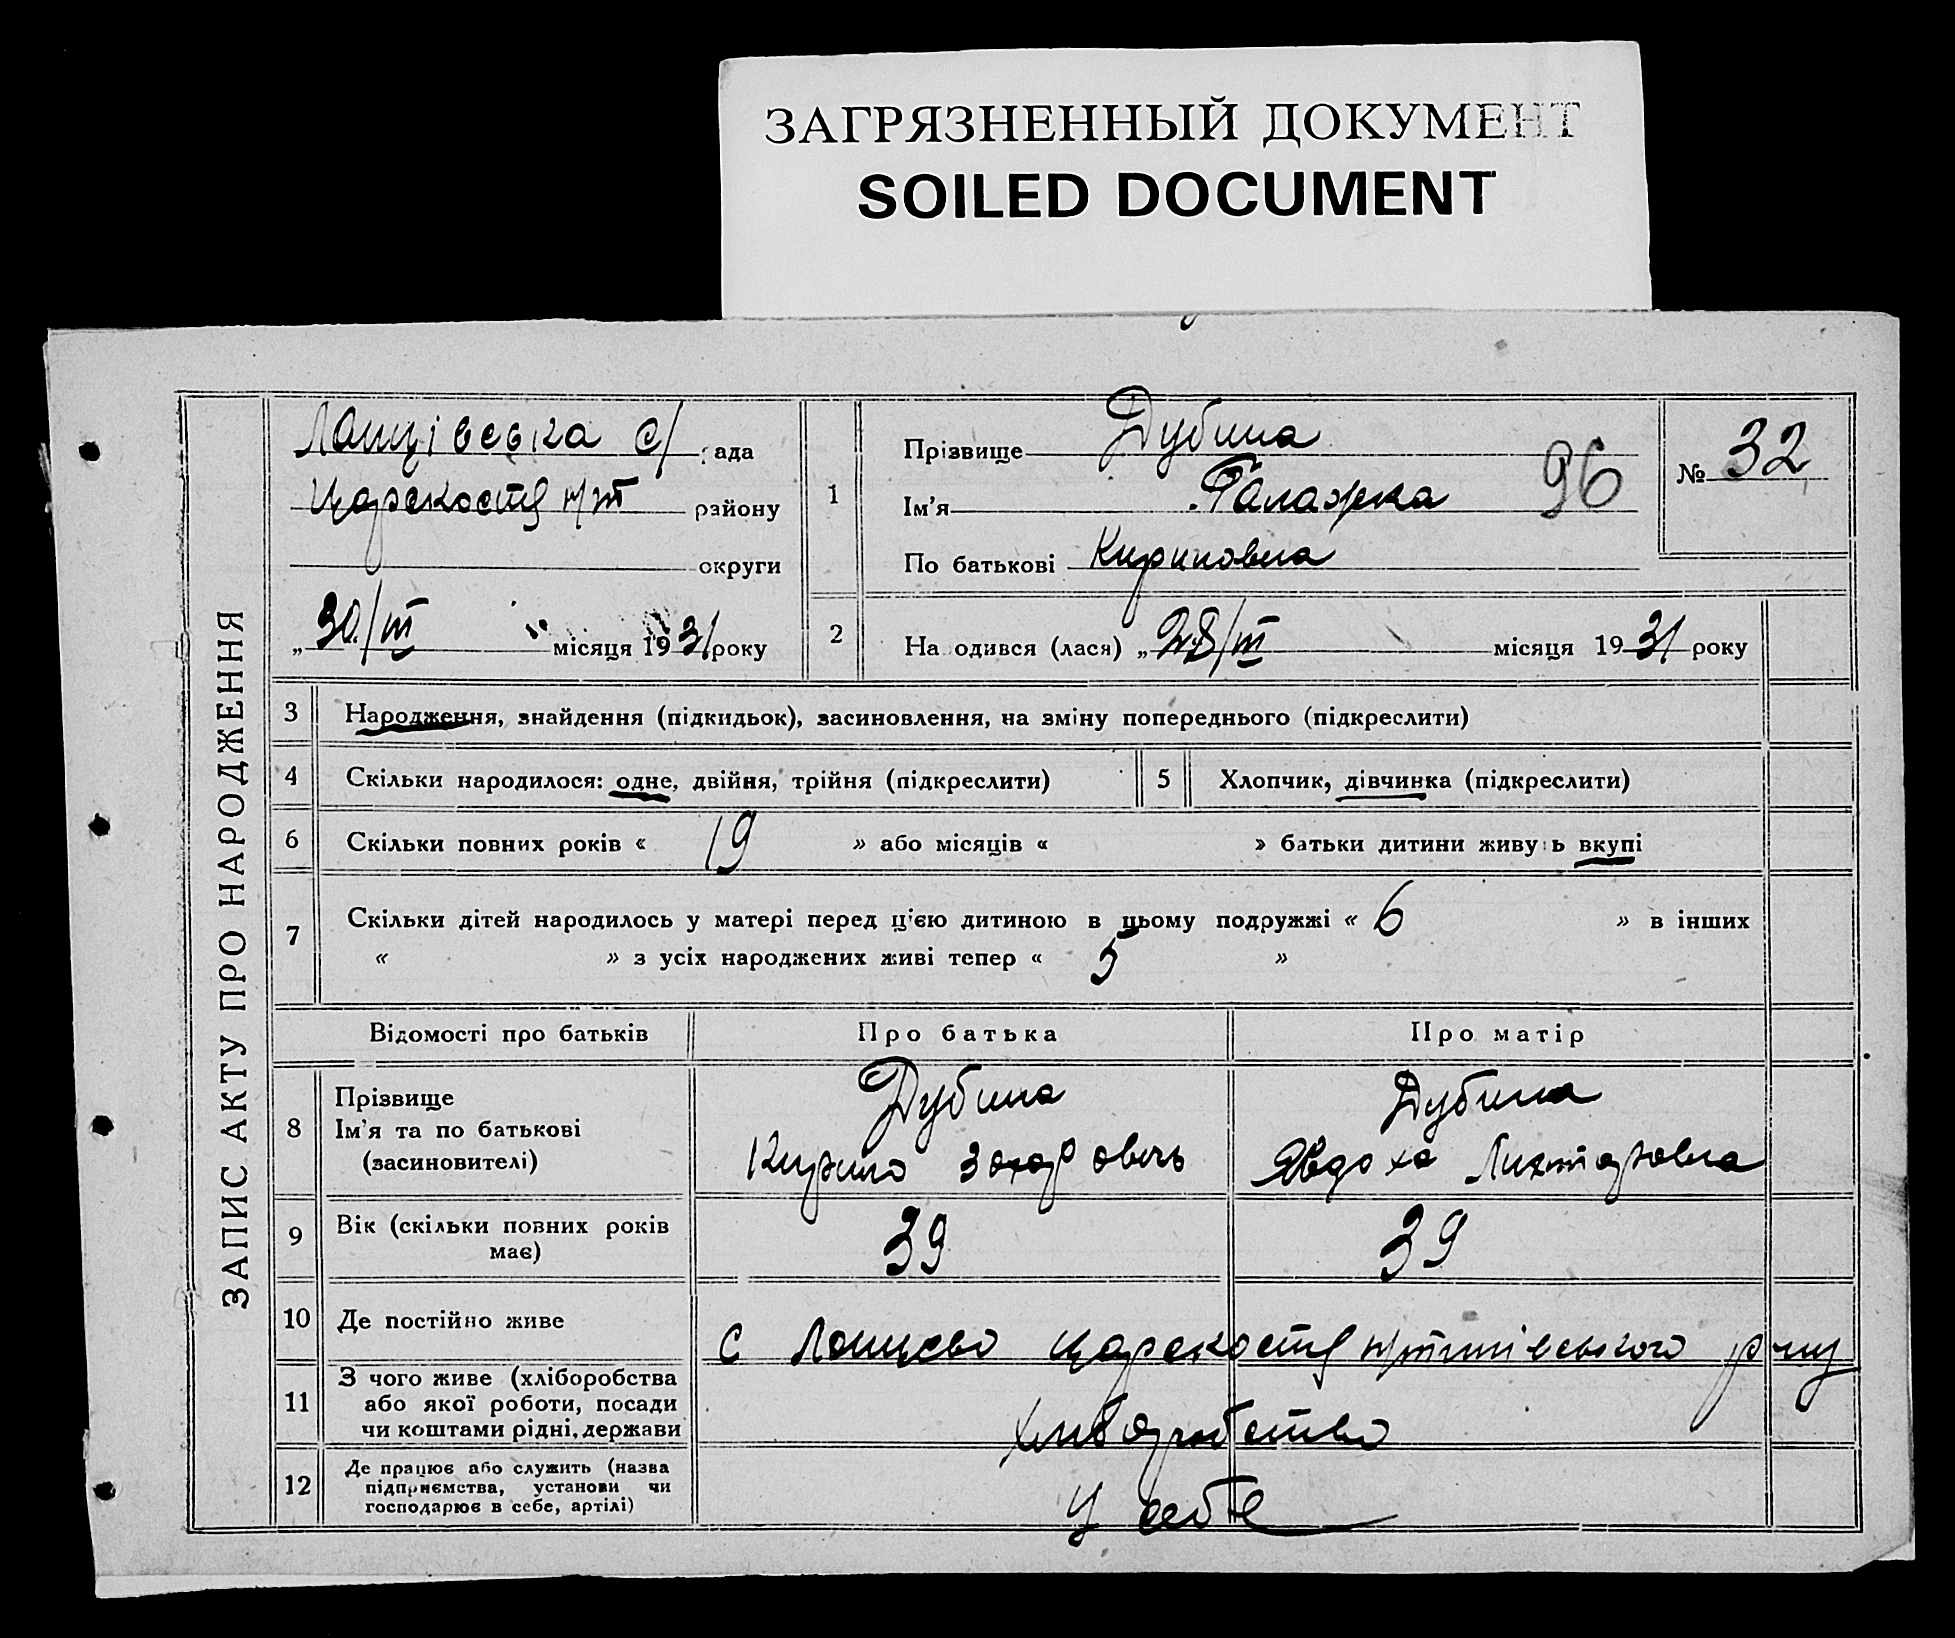 ЗАГРЯЗНЕННЫЙ ДОКУМЕНТ
SOILED DOCUMENT
ЗАПИС АКТУ ПРО НАРОДЖЕННЯ
Лощівська с/рада
району
округи
„30/III місяця 1931 року
1
Прізвище Дубина
Ім'я Палажка 96
По батькові Кириловна
№ 32
2 Народився (лася) „28/III місяця 1931 року
3 Народження, знайдення (підкидьок), засиновлення, на зміну попереднього (підкреслити)
4 Скільки народилося: одне, двійня, трійня (підкреслити)
5 Хлопчик, дівчинка (підкреслити)
6 Скільки повних років « 19 » або місяців « » батьки дитини живуть вкупі
7 Скільки дітей народилось у матері перед ц'єю дитиною в цьому подружжі « 6 » в інших
« » з усіх народжених живі тепер « 5 »
Відомості про батьків Про батька Про матір
8 Прізвище
Ім'я та по батькові
(засиновителі)
Дубина
Кирило Захарович
Дубина
Явдоха
9 Вік (скільки повних років
має)
39 39
10 Де постійно живе
с
11 З чого живе (хліборобства
або якої роботи, посади
чи коштами рідні, держави
12 Де працює або служить (назва
підприємства, установи чи
господарює в себе, артілі)
у себе